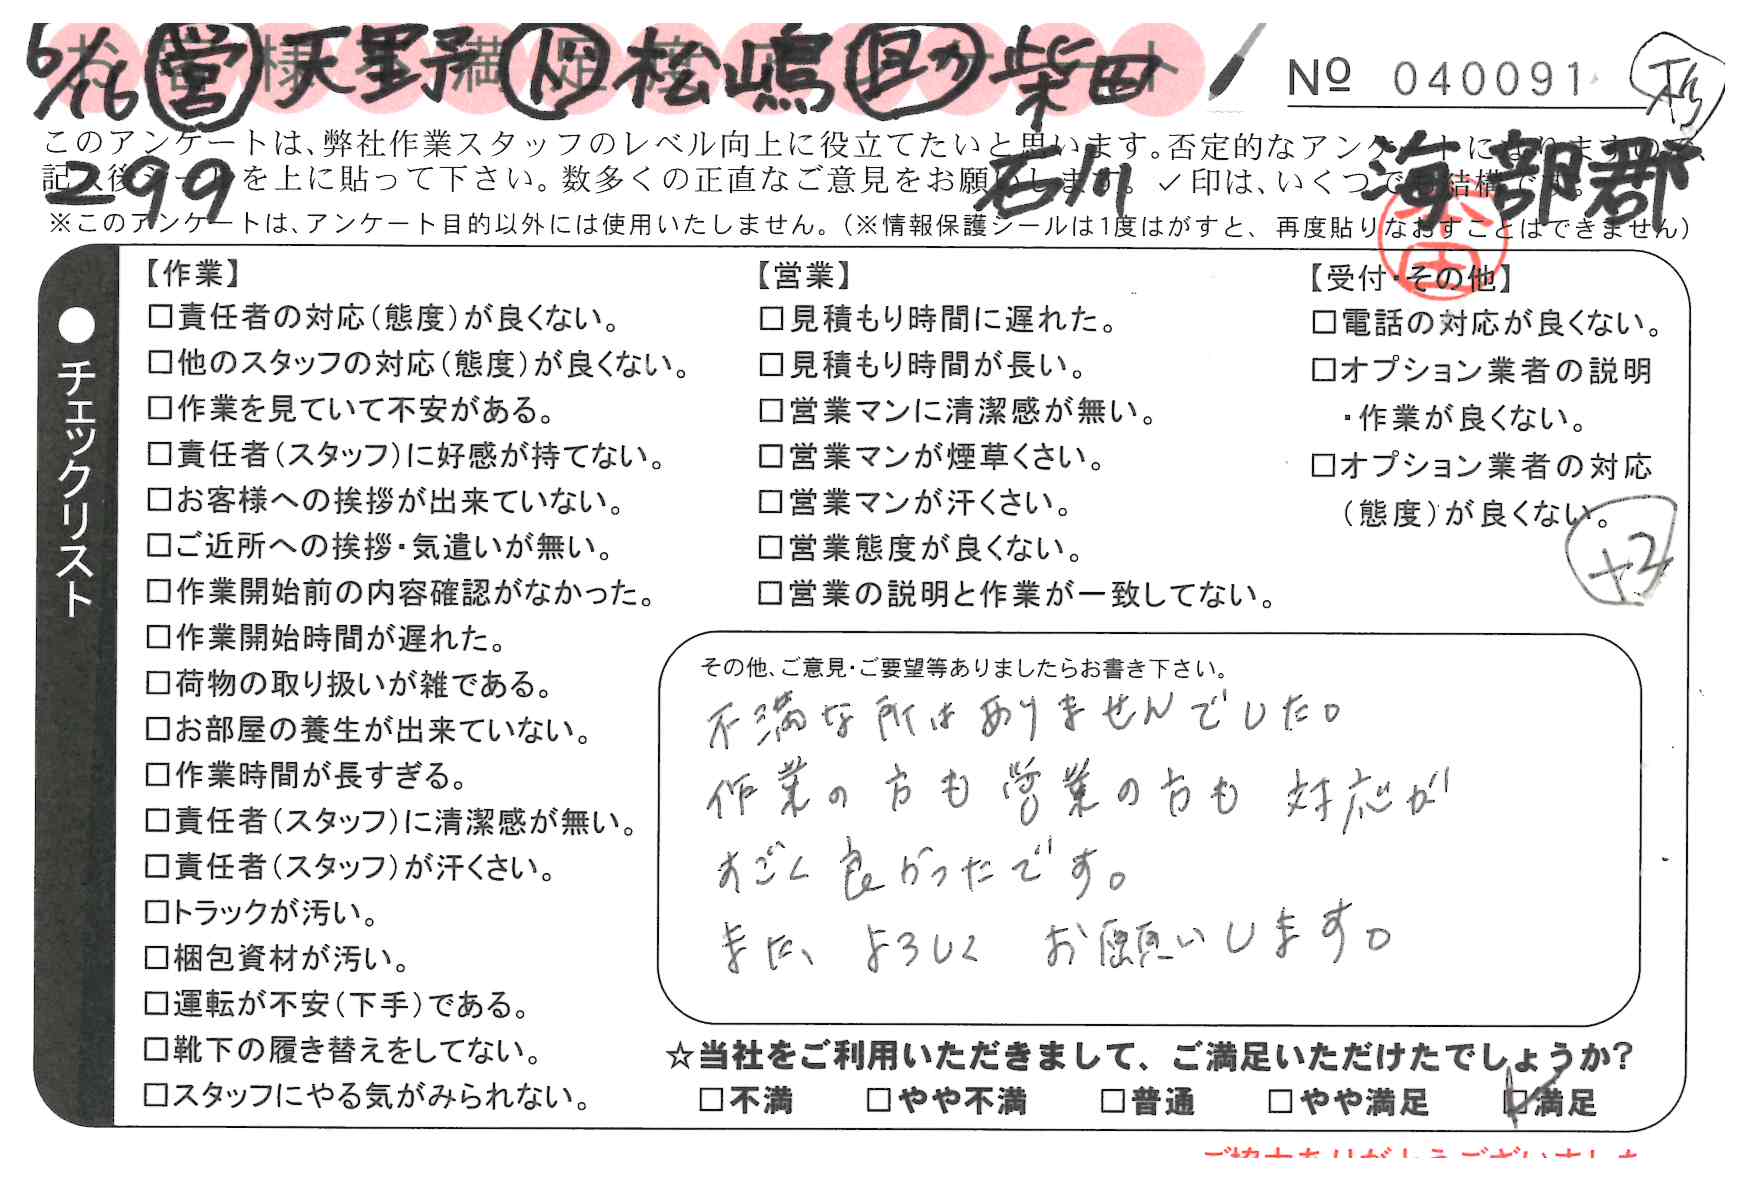 6/16 営 天野 ド 松嶋 助 柴田
お客様不満足度アンケート
№ 040091
このアンケートは、弊社作業スタッフのレベル向上に役立てたいと思います。否定的なアンケートになりますので、
記入後シールを上に貼って下さい。数多くの正直なご意見をお願いします。✓印は、いくつでも結構です。
299 石川 海部郡
※このアンケートは、アンケート目的以外には使用いたしません。(※情報保護シールは1度はがすと、再度貼りなおすことはできません)
●チェックリスト
【作業】
□責任者の対応(態度)が良くない。
□他のスタッフの対応(態度)が良くない。
□作業を見ていて不安がある。
□責任者(スタッフ)に好感が持てない。
□お客様への挨拶が出来ていない。
□ご近所への挨拶・気遣いが無い。
□作業開始前の内容確認がなかった。
□作業開始時間が遅れた。
□荷物の取り扱いが雑である。
□お部屋の養生が出来ていない。
□作業時間が長すぎる。
□責任者(スタッフ)に清潔感が無い。
□責任者(スタッフ)が汗くさい。
□トラックが汚い。
□梱包資材が汚い。
□運転が不安(下手)である。
□靴下の履き替えをしてない。
□スタッフにやる気がみられない。
【営業】
□見積もり時間に遅れた。
□見積もり時間が長い。
□営業マンに清潔感が無い。
□営業マンが煙草くさい。
□営業マンが汗くさい。
□営業態度が良くない。
□営業の説明と作業が一致してない。
【受付・その他】
□電話の対応が良くない。
□オプション業者の説明
・作業が良くない。
□オプション業者の対応
(態度)が良くない。
+2
その他、ご意見・ご要望等ありましたらお書き下さい。
不満な所はありませんでした。
作業の方も営業の方も 対応が
すごく良かったです。
また、よろしく お願いします。
☆当社をご利用いただきまして、ご満足いただけたでしょうか?
□不満 □やや不満 □普通 □やや満足 ☑満足
ご協力ありがとうございました